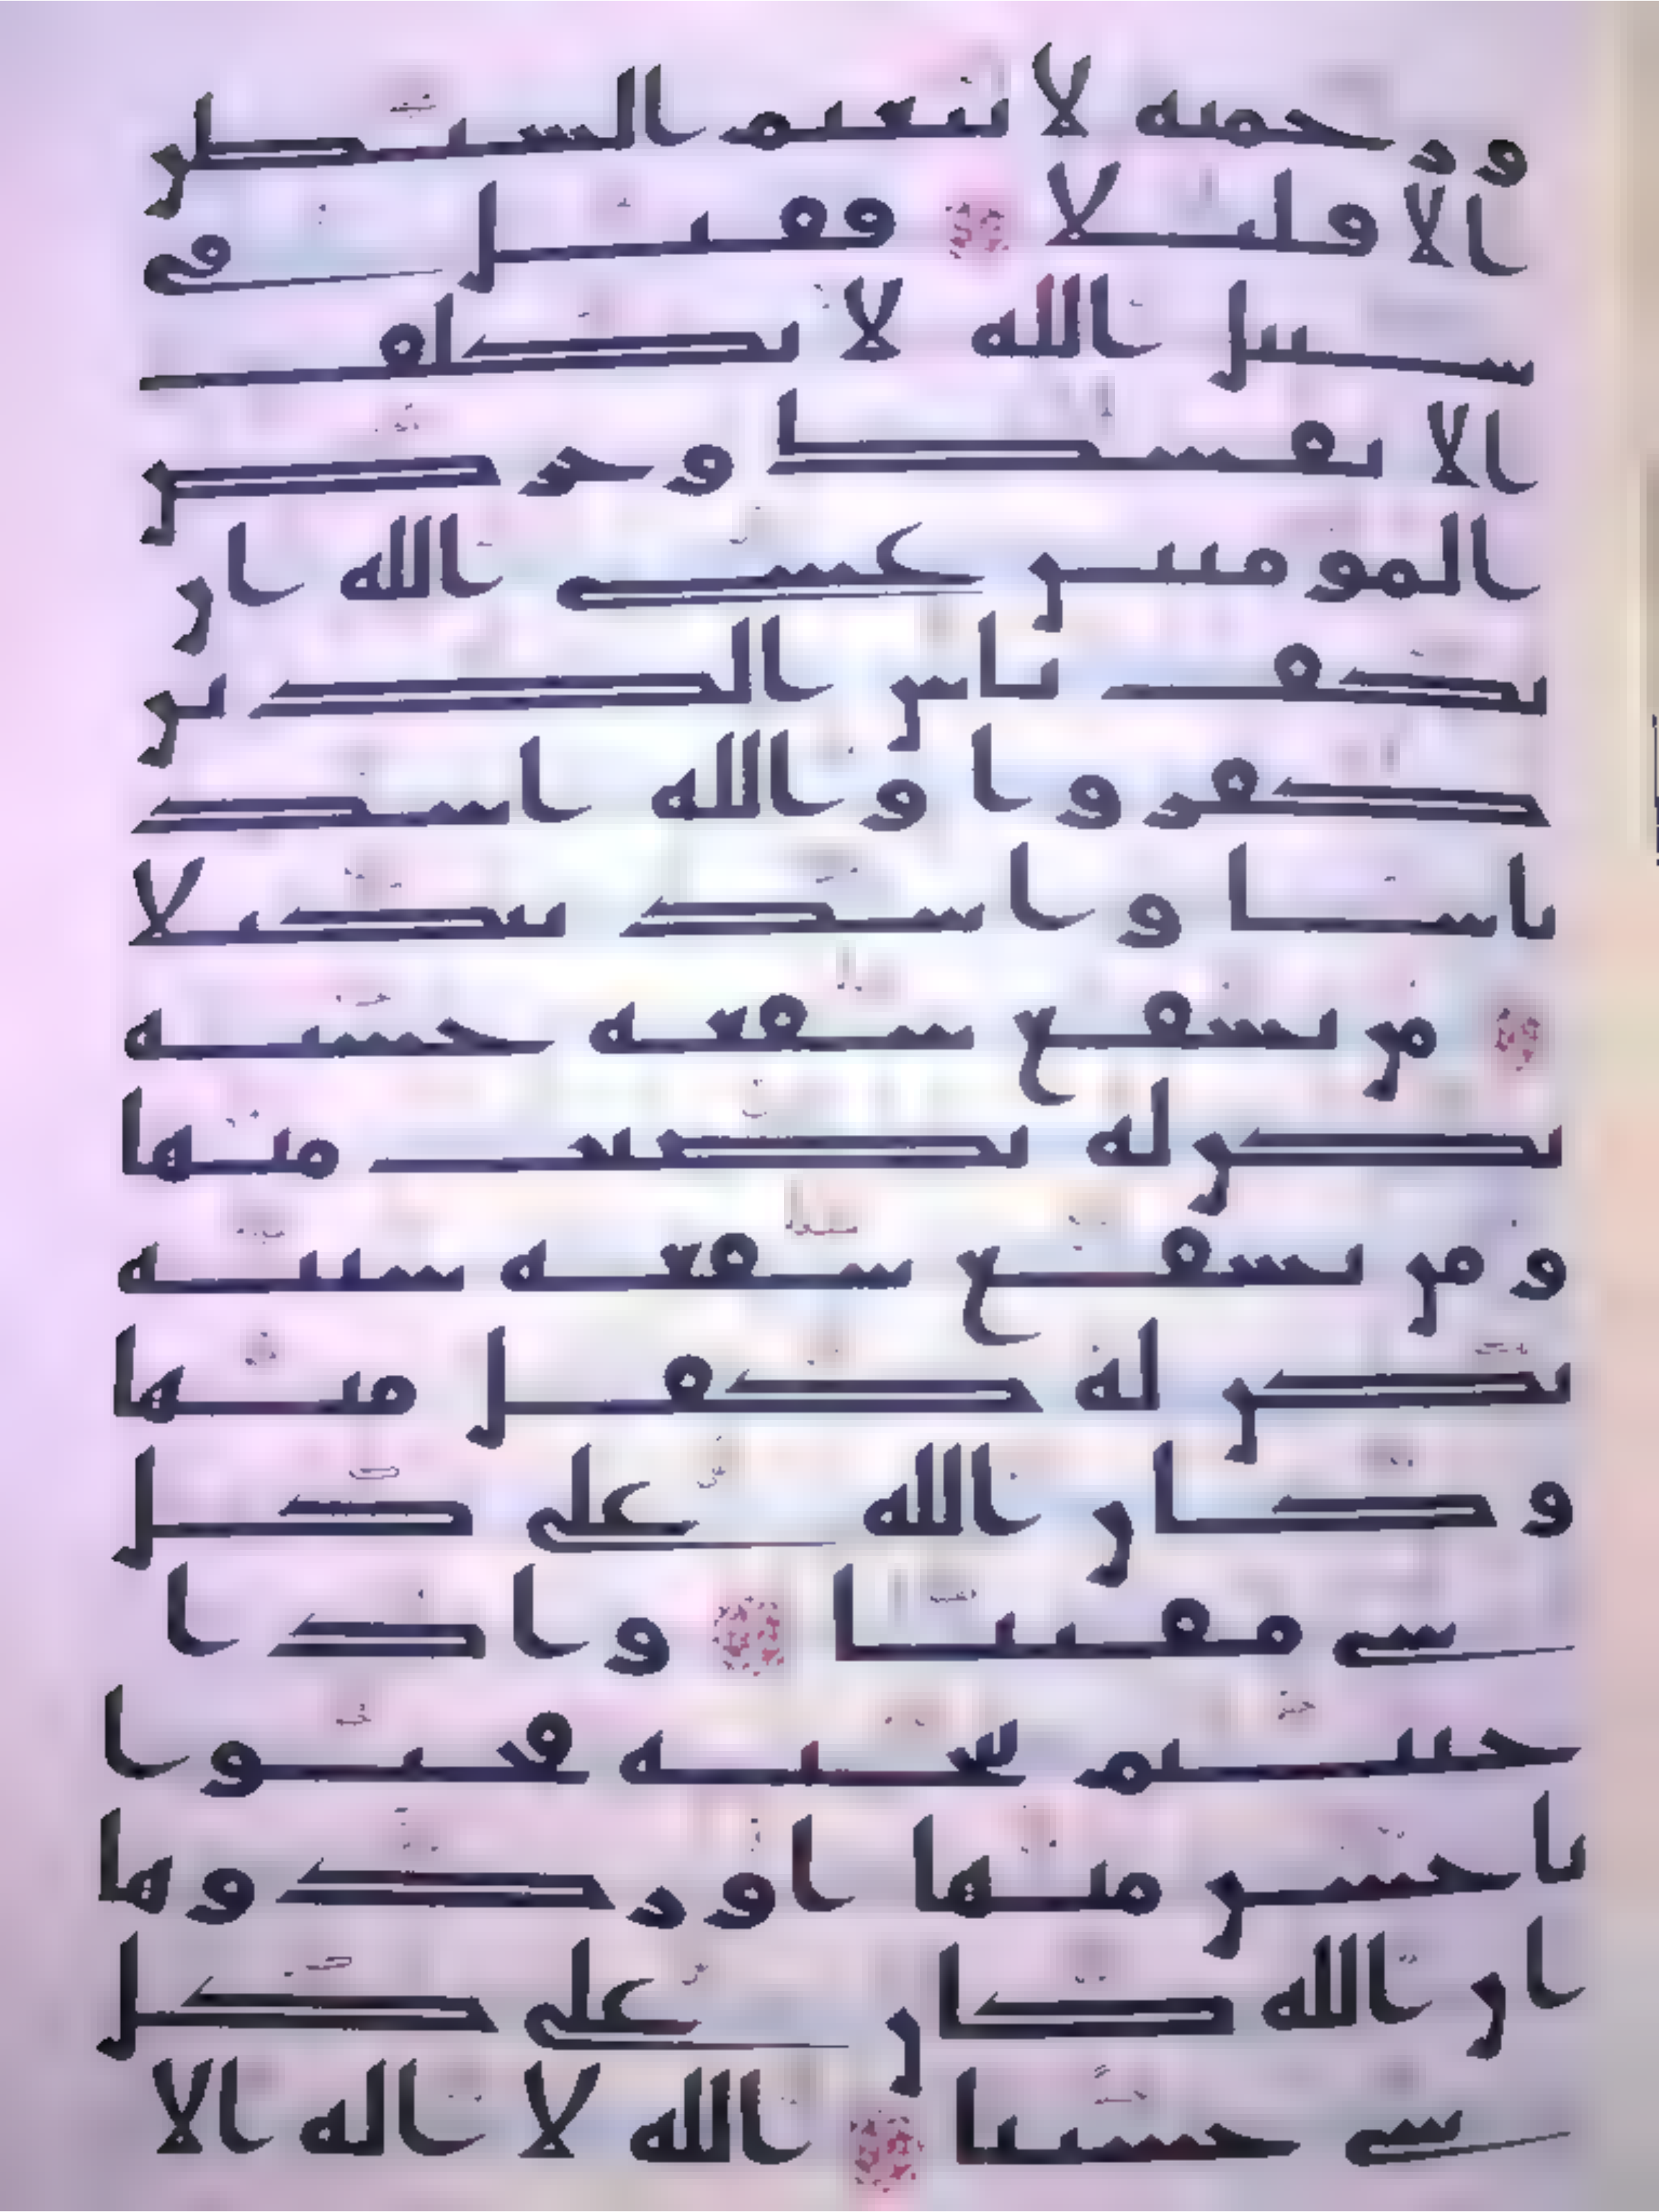 ورحمته لاتبعتم الشيطن
الا قليلا فقتل في
سبيل الله لا تكلف
الا نفسك وحرض
المومنين عسى الله ان
يكف باس الذين
كفروا والله اشد
باسا واشد تنكيلا
من يشفع شفعة حسنة
يكن له نصيب منها
ومن يشفع شفعة سيئة
يكن له كفل منها
وكان الله على كل
شي مقيتا واذا
حييتم بتحية فحيوا
باحسن منها او ردوها
ان الله كان على كل
شي حسيبا الله لا اله الا